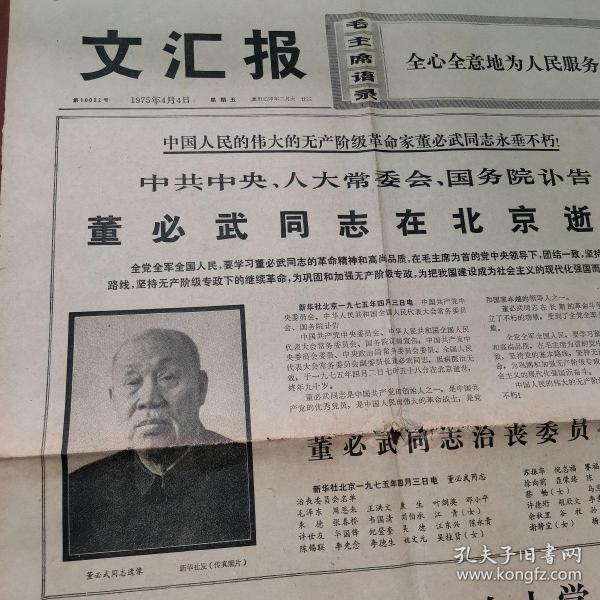 文汇报
毛主席语录
全心全意地为人民服务
1975年4月4日 星期五
中国人民的伟大的无产阶级革命家董必武同志永垂不朽！
中共中央、人大常委会、国务院讣告
董必武同志在北京逝
全党全军全国人民，要学习董必武同志的革命精神和高尚品质，在毛主席为首的党中央领导下，团结一致，坚持
路线，坚持无产阶级专政下的继续革命，为巩固和加强无产阶级专政，为把我国建设成为社会主义的现代化强国而
新华社北京一九七五年四月三日电 中国共产党中
央委员会、中华人民共和国全国人民代表大会常务委员
会、国务院讣告
中国共产党中央委员会、中华人民共和国全国人民
代表大会常务委员会、国务院沉痛宣告：中国共产党中
央委员会委员、中央政治局常务委员会委员、全国人民
代表大会常务委员会副委员长董必武同志，因病医治无
效，于一九七五年四月二日七时五十八分在北京逝世，
终年九十岁。
董必武同志是中国共产党的创始人之一，是中国共
产党的优秀党员，是中国人民的伟大的革命战士，是党
和国家卓越的领导人之一。
董必武同志在长期的革命斗争
立了不朽的功勋，受到了全党全
全党全军全国人民，要学习董
和高尚品质，在毛主席为首的党中
坚持党的基本路线，坚持无
命，为巩固和加强无产阶级专政
会主义的现代化强国而奋斗。
中国人民的伟大的无产阶级革
不朽！
董必武同志治丧委员
新华社北京一九七五年四月三日电 董必武同志
治丧委员会名单
毛泽东 周恩来 王洪文 康生 叶剑英 邓小平
朱德 张春桥 韦国清 刘伯承 江青（女）
许世友 华国锋 纪登奎 吴德 汪东兴 陈永贵
陈锡联 李先念 李德生 姚文元 吴桂贤（女）
苏振华 倪志福 赛福
徐向前 聂荣臻 陈
蔡畅（女） 乌兰
许德珩 胡厥文 李
余秋里 谷牧 孙
谢静宜（女） 杨
董必武同志遗像
新华社发（传真照片）
孔夫子旧书网
www.kongfz.com